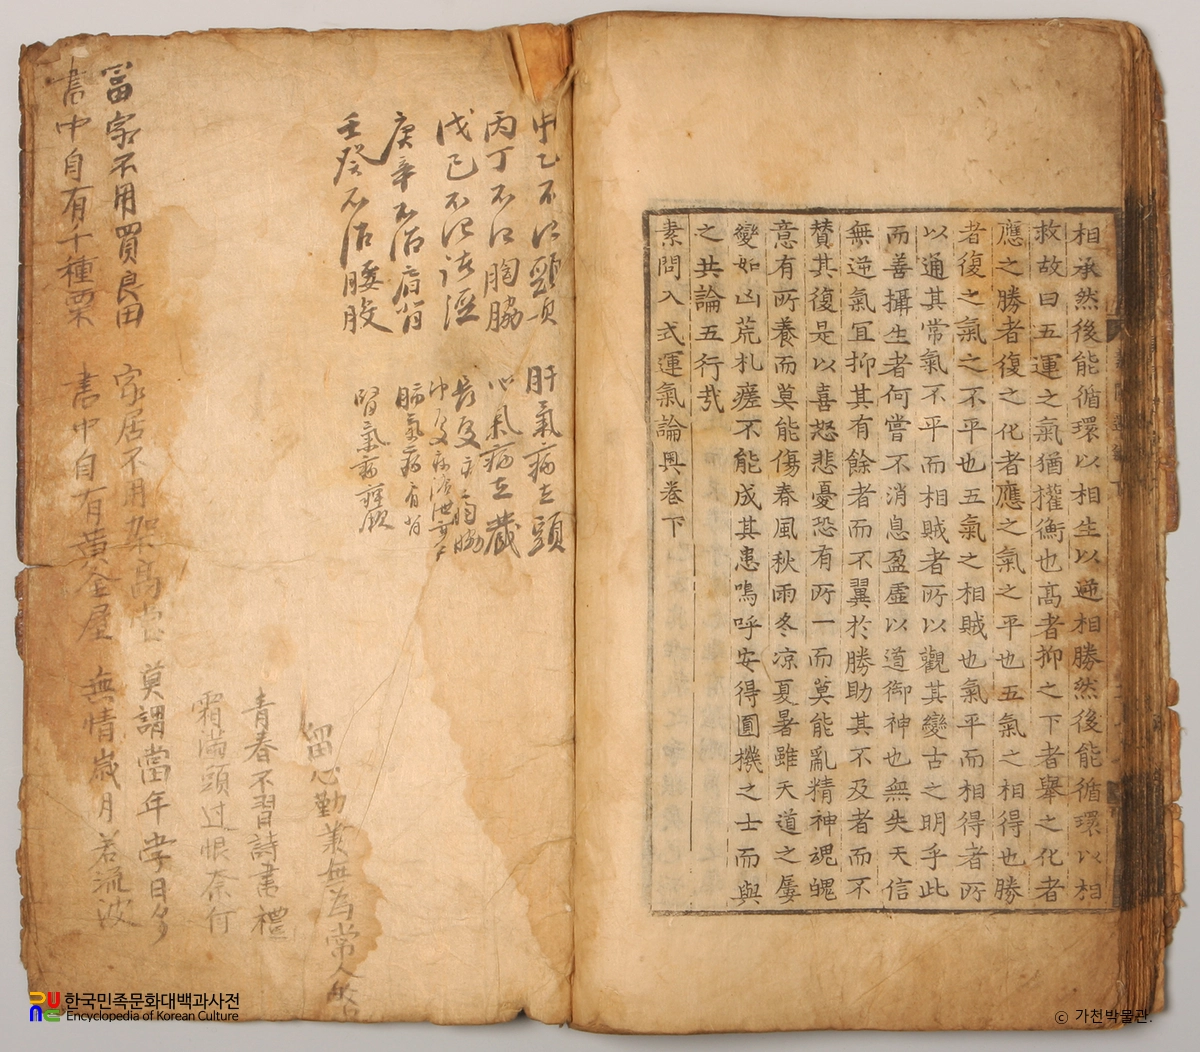 相承然後能循環以相生以逓相勝然後能循環以相
救故曰五運之氣猶權衡也高者抑之下者擧之化者
應之勝者復之化者應之氣之平也五氣之相得也勝
者復之氣之不平也五氣之相賊也氣平而相得者所
以通其常氣不平而相賊者所以觀其變古之明乎此
而善攝生者何嘗不消息盈虛以道御神也無失天信
無逆氣冝抑其有餘者而不翼於勝助其不及者而不
賛其復是以喜怒悲憂恐有所一而莫能亂精神魂魄
意有所養而莫能傷春風秋雨冬凉夏暑雖天道之屡
變如凶荒札瘥不能成其患嗚呼安得圓機之士而與
之共論五行㢤
素問入式運氣論奧卷下
甲乙不治頭項 肝氣病在頭
丙丁不治胸脇 心氣病在蔵
戊己不治
庚辛不治肩背 肺氣病肩背
壬癸不治腰股 腎氣病
留心勤 無為常人
青春不習詩書禮
霜滿頭过恨奈何
富家不用買良田 家居不用架高堂 莫謂當年学日多
書中自有千種粟 書中自有黃金屋 無情歲月若流波
한국민족문화대백과사전
Encyclopedia of Korean Culture
ⓒ 가천박물관.